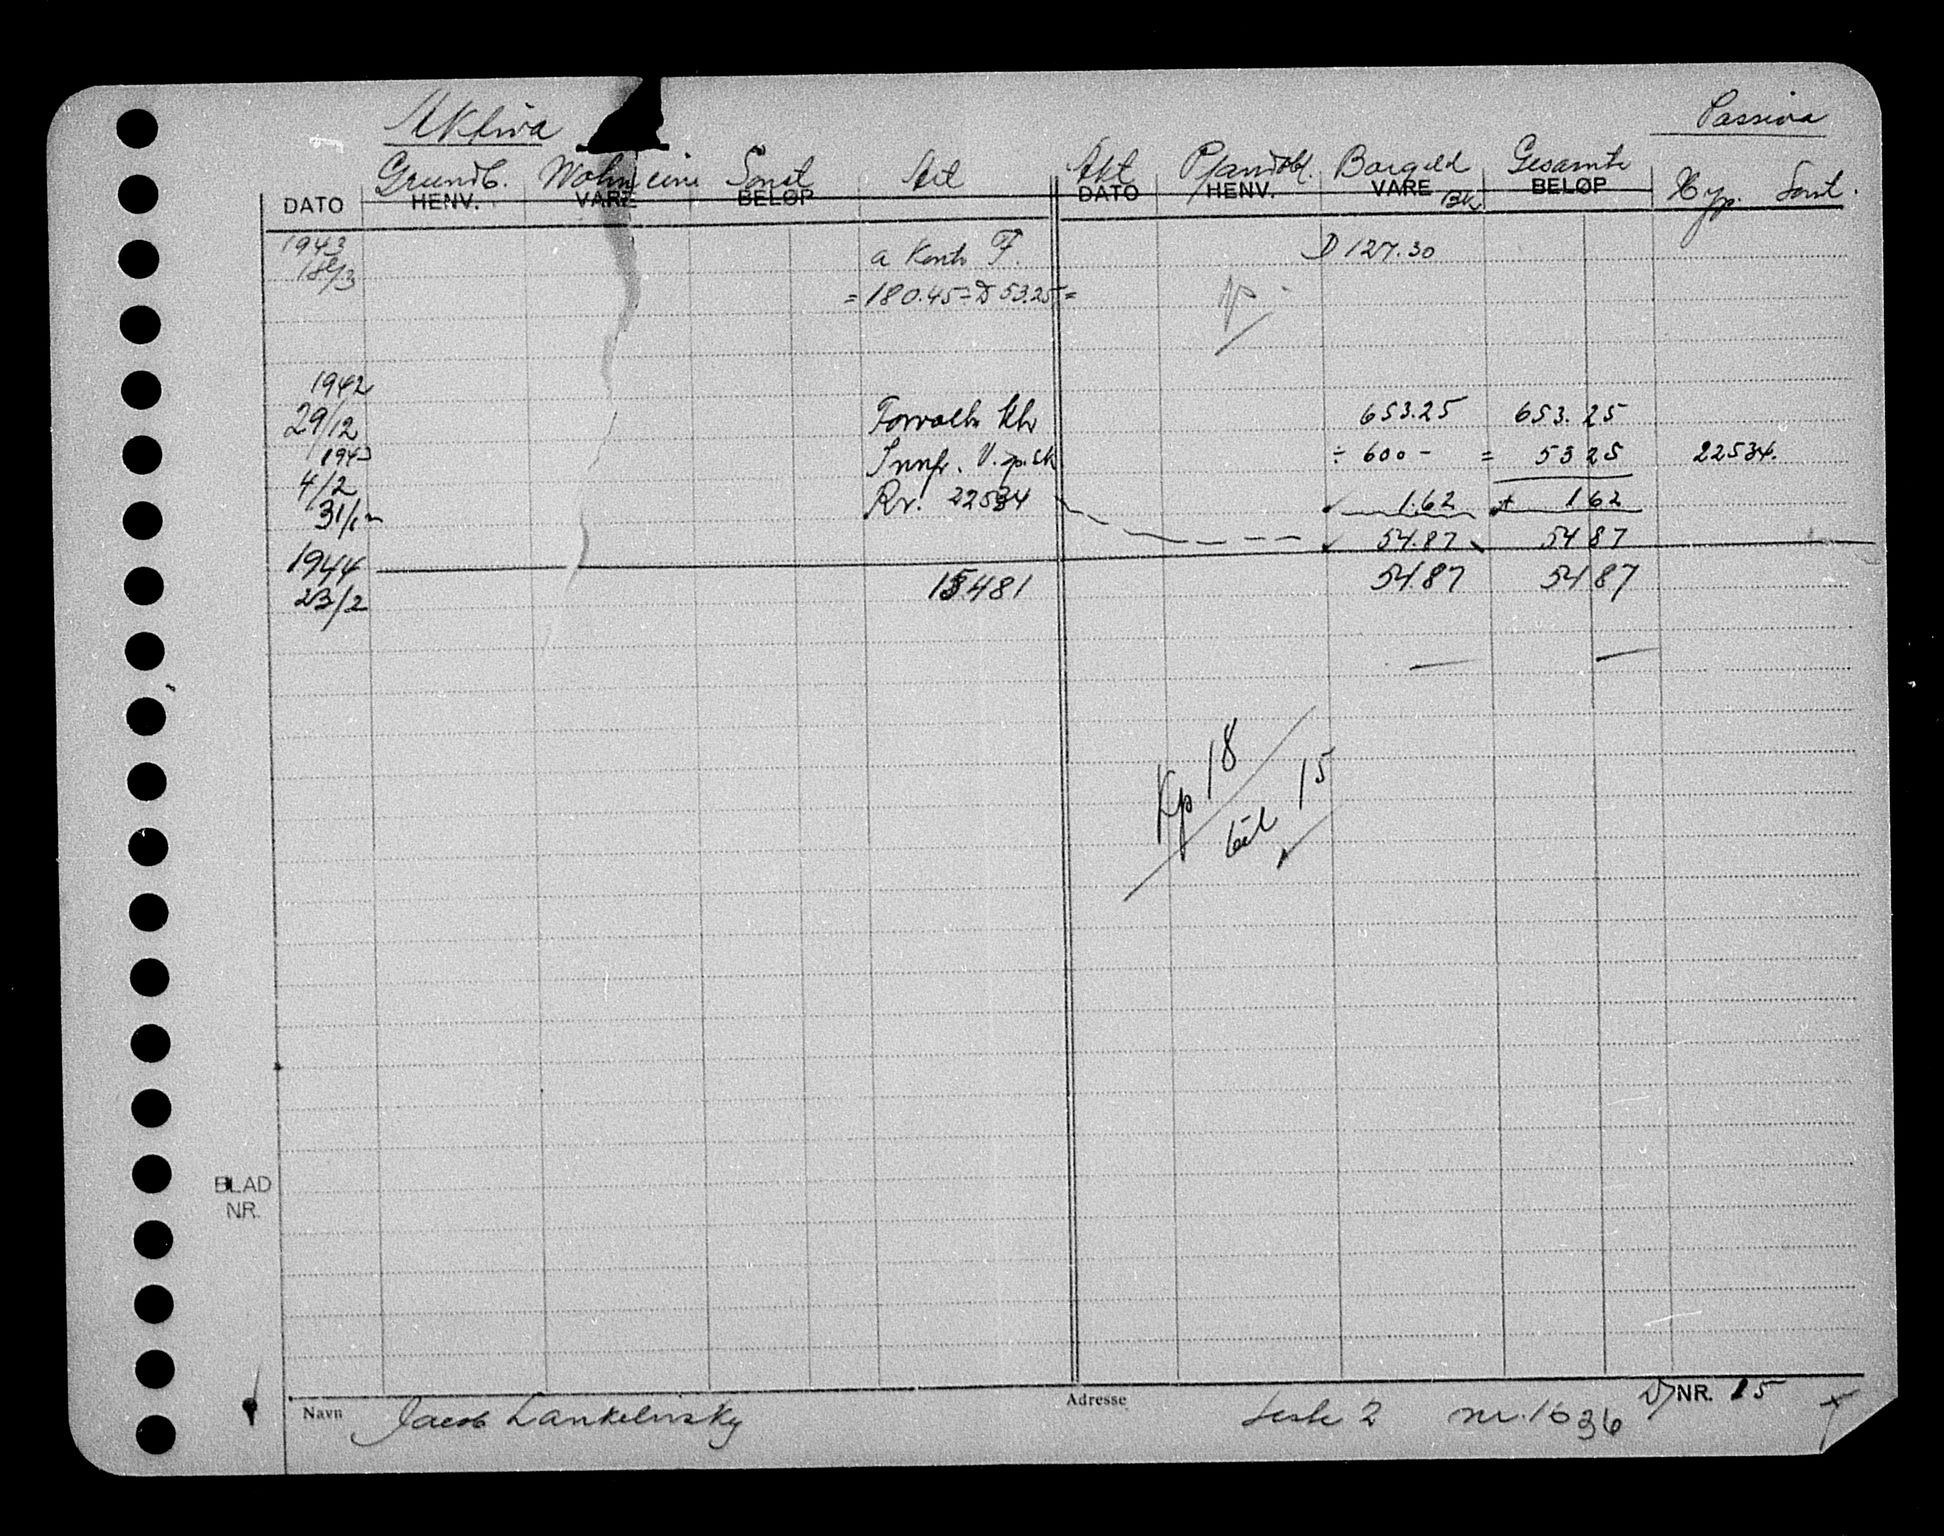 Aktiva Passiva
Grundb. Wohn eini Sonst Art Akt Pfandbf. Bargeld Gesamte Hyp. Sonst.
DATO HENV. VARE BELØP DATO HENV. VARE Bk BELØP
1943
18/3 a Konto F. D 127.30
= 180.45 = D 53.25 =
1942
29/12 Forvaltn. Kto 653.25 653.25
1943
4/2 Innfr. V. ÷ 600 - = 53 25 22534.
31/12 Rr. 22534 1.62 + 1 62
54.87 54 87
1944
23/2 15481 54.87 54 87
Kp 18
bil 15
BLAD
NR.
Navn Jacob Lankelinsky Adresse Liste 2 nr. 1636 D/NR. 15